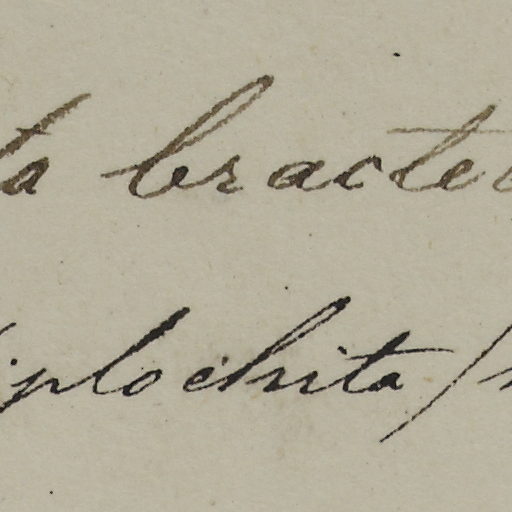 ta bracte
iplochita /